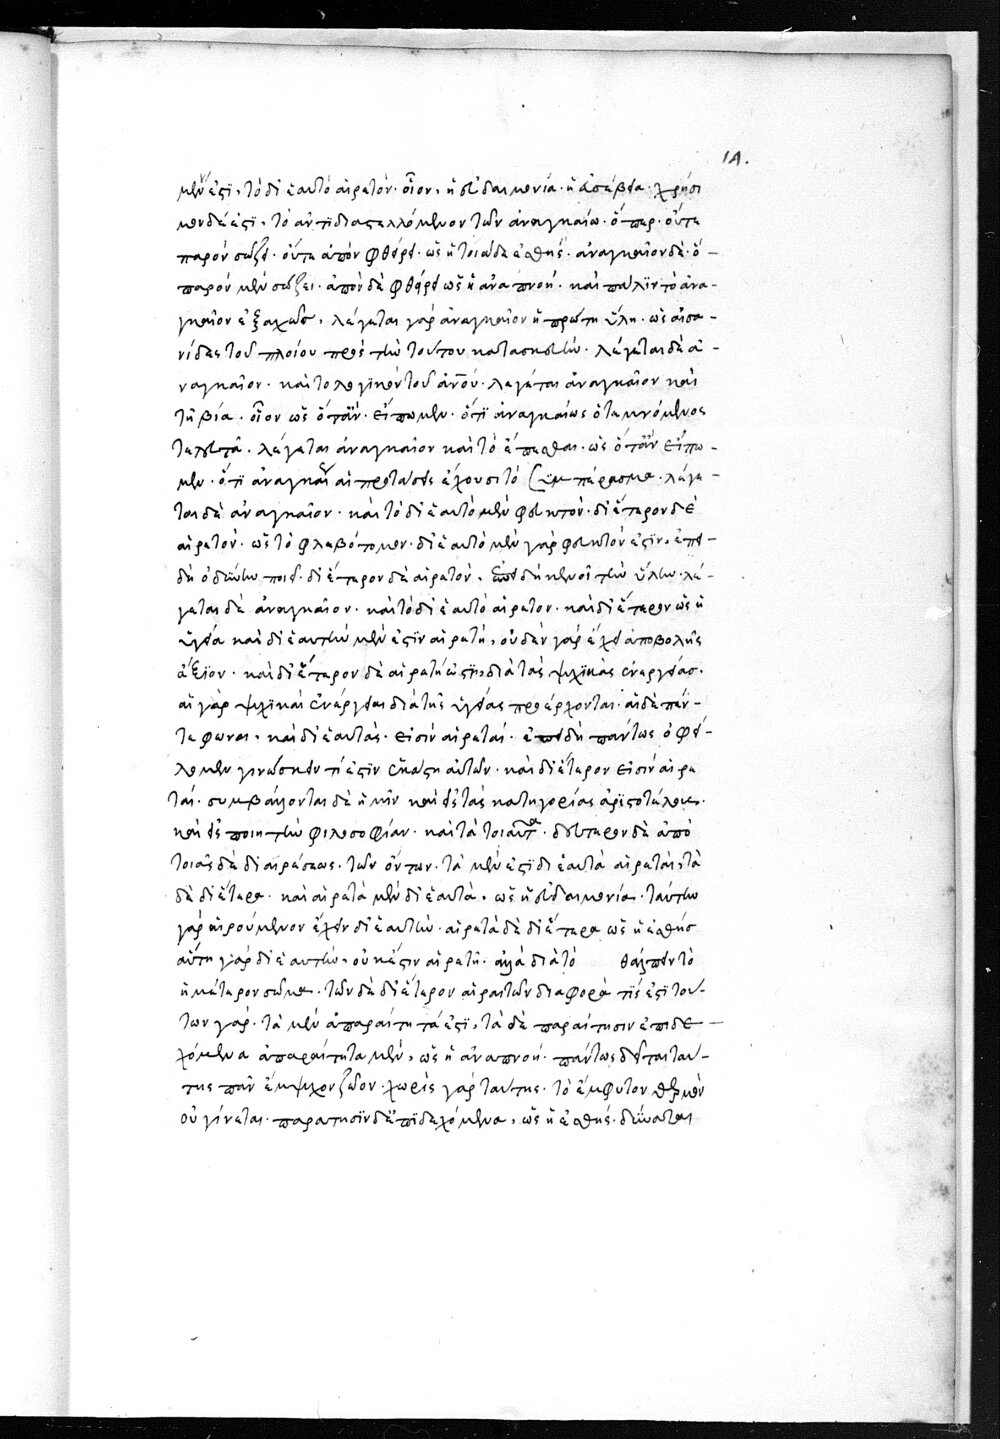 14.
μέν ἐστι, τὸ δι' ἑαυτὸ αἱρετόν· οἷον, ἡ εὐδαιμονία· ἡ εὐσέβεια· χρήσι
μον δέ ἐστι, τὸ ἀντιδιαστελλόμενον τῶν ἀναγκαίω· ὅπερ· οὔτε
παρὸν σώζει· οὔτε ἀπὸν φθείρει· ὡς ἡ τοιάδε ἐσθής· ἀναγκαῖον δὲ· ὃ -
παρὸν μὲν σώζει· ἀπὸν δὲ φθείρει ὡς ἡ ἀναπνοή· καὶ πάλιν τὸ ἀνα-
γκαῖον ἑξαχῶς, λέγεται γὰρ ἀναγκαῖον ἡ πρώτη ὕλη· ὡς αἱ σα-
νίδες τοῦ πλοίου πρὸς τὴν τούτου κατασκευήν· λέγεται δὲ ἀ-
ναγκαῖον· καὶ τὸ λογικὸν τοῦ ἀνου· λέγεται ἀναγκαῖον καὶ
τῇ βία· οἷον ὡς ὅταν· εἴπωμεν· ὅτι ἀναγκαίως ὁ τεμνόμενος
τελευτᾶ· λέγεται ἀναγκαῖον καὶ τὸ ἕπεσθαι· ὡς ὅταν εἴπω-
μεν· ὅτι ἀναγκαῖ αἱ προτάσεις ἔχουσι τὸ συμπέρασμα· λέγε-
ται δὲ ἀναγκαῖον· καὶ τὸ δι' ἑαυτὸ μὲν φευκτὸν· δι' ἕτερον δὲ
αἱρετόν· ὡς τὸ φλεβότομον· δι' ἑαυτὸ μὲν γὰρ φευκτόν ἐστιν, ἐπει-
δὴ ὀδύνην ποιεῖ· δι' ἕτερον δὲ αἱρετόν, ἐπειδὴ κενοῖ τὴν ὕλην· λέ-
γεται δὲ ἀναγκαῖον· καὶ τὸ δι' ἑαυτὸ αἱρετον· καὶ δι' ἕτερον ὡς ἡ
ὑγεία καὶ δι' ἑαυτὴν μέν ἐστιν αἱρετή, οὐδὲν γὰρ ἔχει ἀποβολῆς
ἄξιον· καὶ δι' ἕτερον δὲ αἱρετή ἐστι, διὰ τὰς ψυχικὰς ἐνεργείας·
αἱ γὰρ ψυχικαὶ ἐνέργειαι διὰ τῆς ὑγείας προέρχονται· αἱ δὲ πέν-
τε φωναι, καὶ δι' ἑαυτάς· εἰσιν αἱρεταί· ἐπειδὴ πάντως ὀφεί-
λομεν γινώσκειν τί ἐστιν ἑκάστη αὐτῶν· καὶ δι' ἕτερον εἰσιν αἱρε
ταί· συμβάλλονται δὲ ἡμῖν καὶ εἰς τὰς κατηγορίας ἀριστοτέλους·
καὶ εἰς ποιητὴν φιλοσοφίαν· καὶ τὰ τοιαῦτα· δεύτερον δὲ ἀπὸ
τοιᾶσδε διαιρέσεως· τῶν ὄντων· τὰ μέν ἐστι δι' ἑαυτὰ αἱρετὰ, τὰ
δὲ δι' ἕτερα· καὶ αἱρετὰ μὲν δι' ἑαυτὰ, ὡς ἡ εὐδαιμονία· ταύτην
γὰρ αἱρούμενον ἔχειν δι' ἑαυτὴν· αἱρετὰ δὲ δι' ἕτερα ὡς ἡ ἐσθής
αὕτη γὰρ δι' ἑαυτὴν, οὐκ ἔστιν αἱρετή· ἀλλὰ διὰ τὸ θάλπειν τὸ
ἡμέτερον σῶμα· τῶν δὲ δι' ἕτερον αἱρετῶν διαφορά τίς ἐστι τού-
των γὰρ· τὰ μὲν ἀπαραίτητά ἐστι, τὰ δὲ παραίτησιν ἐπιδε -
χόμενα ἀπαραίτητα μὲν, ὡς ἡ ἀναπνοή· πάντως δεῖται ταύ-
της πᾶν ἔμψυχον ζῶον· χωρὶς γὰρ ταύτης· τὸ ἔμφυτον θερμὸν
οὐ γίνεται· παρατησιν δὲ ἐπιδεχόμενα, ὡς ἡ ἐσθής· δύναται